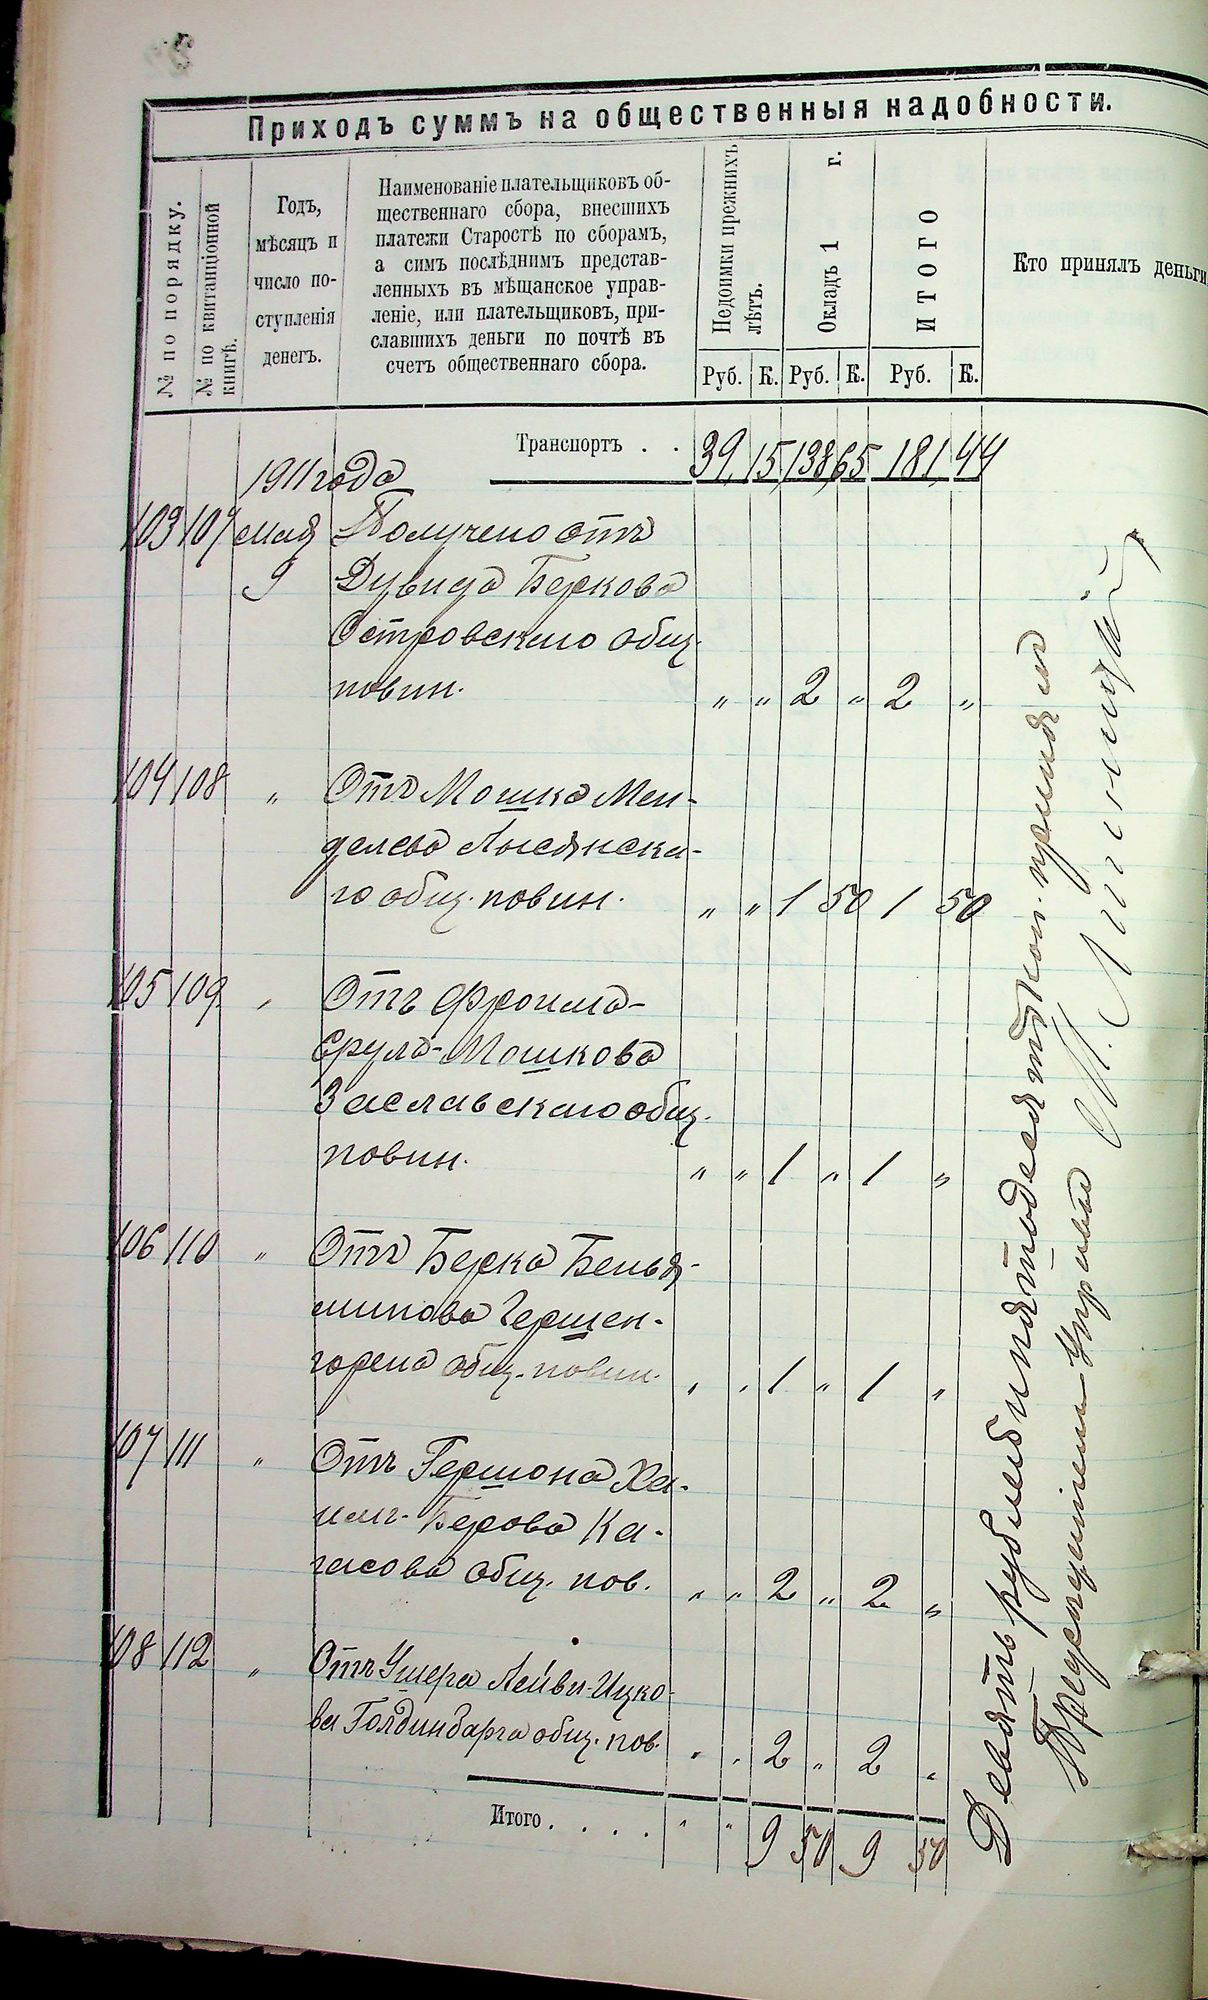 Приходъ суммъ на общественныя надобности.
№ по порядку.
№ по квитанціонной
книгѣ.
Годъ,
мѣсяцъ и
число по-
ступленія
денегъ.
Наименованіе плательщиковъ об-
щественнаго сбора, внесшихъ
платежи Старостѣ по сборамъ,
а симъ послѣднимъ представ-
ленныхъ въ мѣщанское управ-
леніе, или плательщиковъ, при-
славшихъ деньги по почтѣ въ
счетъ общественнаго сбора.
Недоимки прежнихъ
лѣтъ.
Окладъ 1 г.
ИТОГО
Кто принялъ деньги
Руб. К. Руб. К. Руб. К.
Транспортъ . . 39, 15, 138, 65 181, 44
1911 года
103 107 Мая Получено отъ
9 Дувида Беркова
Островскаго общ.
повин. „ „ 2 „ 2 „
104 108 „ Отъ Мошка Мен-
делева Лысянска-
го общ. повин. „ „ 1 50 1 50
105 109 „ Отъ Фроима-
Срула-Мошкова
Заславскаго общ.
повин. „ „ 1 „ 1 „
106 110 „ Отъ Берка Бенья-
минова Гершен-
горена общ. повин. „ „ 1 „ 1 „
107 111 „ Отъ Гершона Ха-
имъ-Берова Ка-
гасова общ. пов. „ „ 2 „ 2 „
108 112 „ Отъ Ушера Лейви-Ицко-
ва Голдинбарга общ. пов. „ „ 2 „ 2 „
Итого . . . . „ „ 9 50 9 50
Девять рублей и пятьдесятъ коп. принялъ
Предсѣдатель Управы